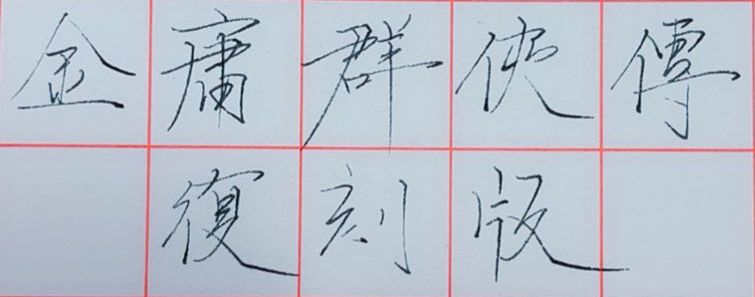 金庸群俠傳
復刻版